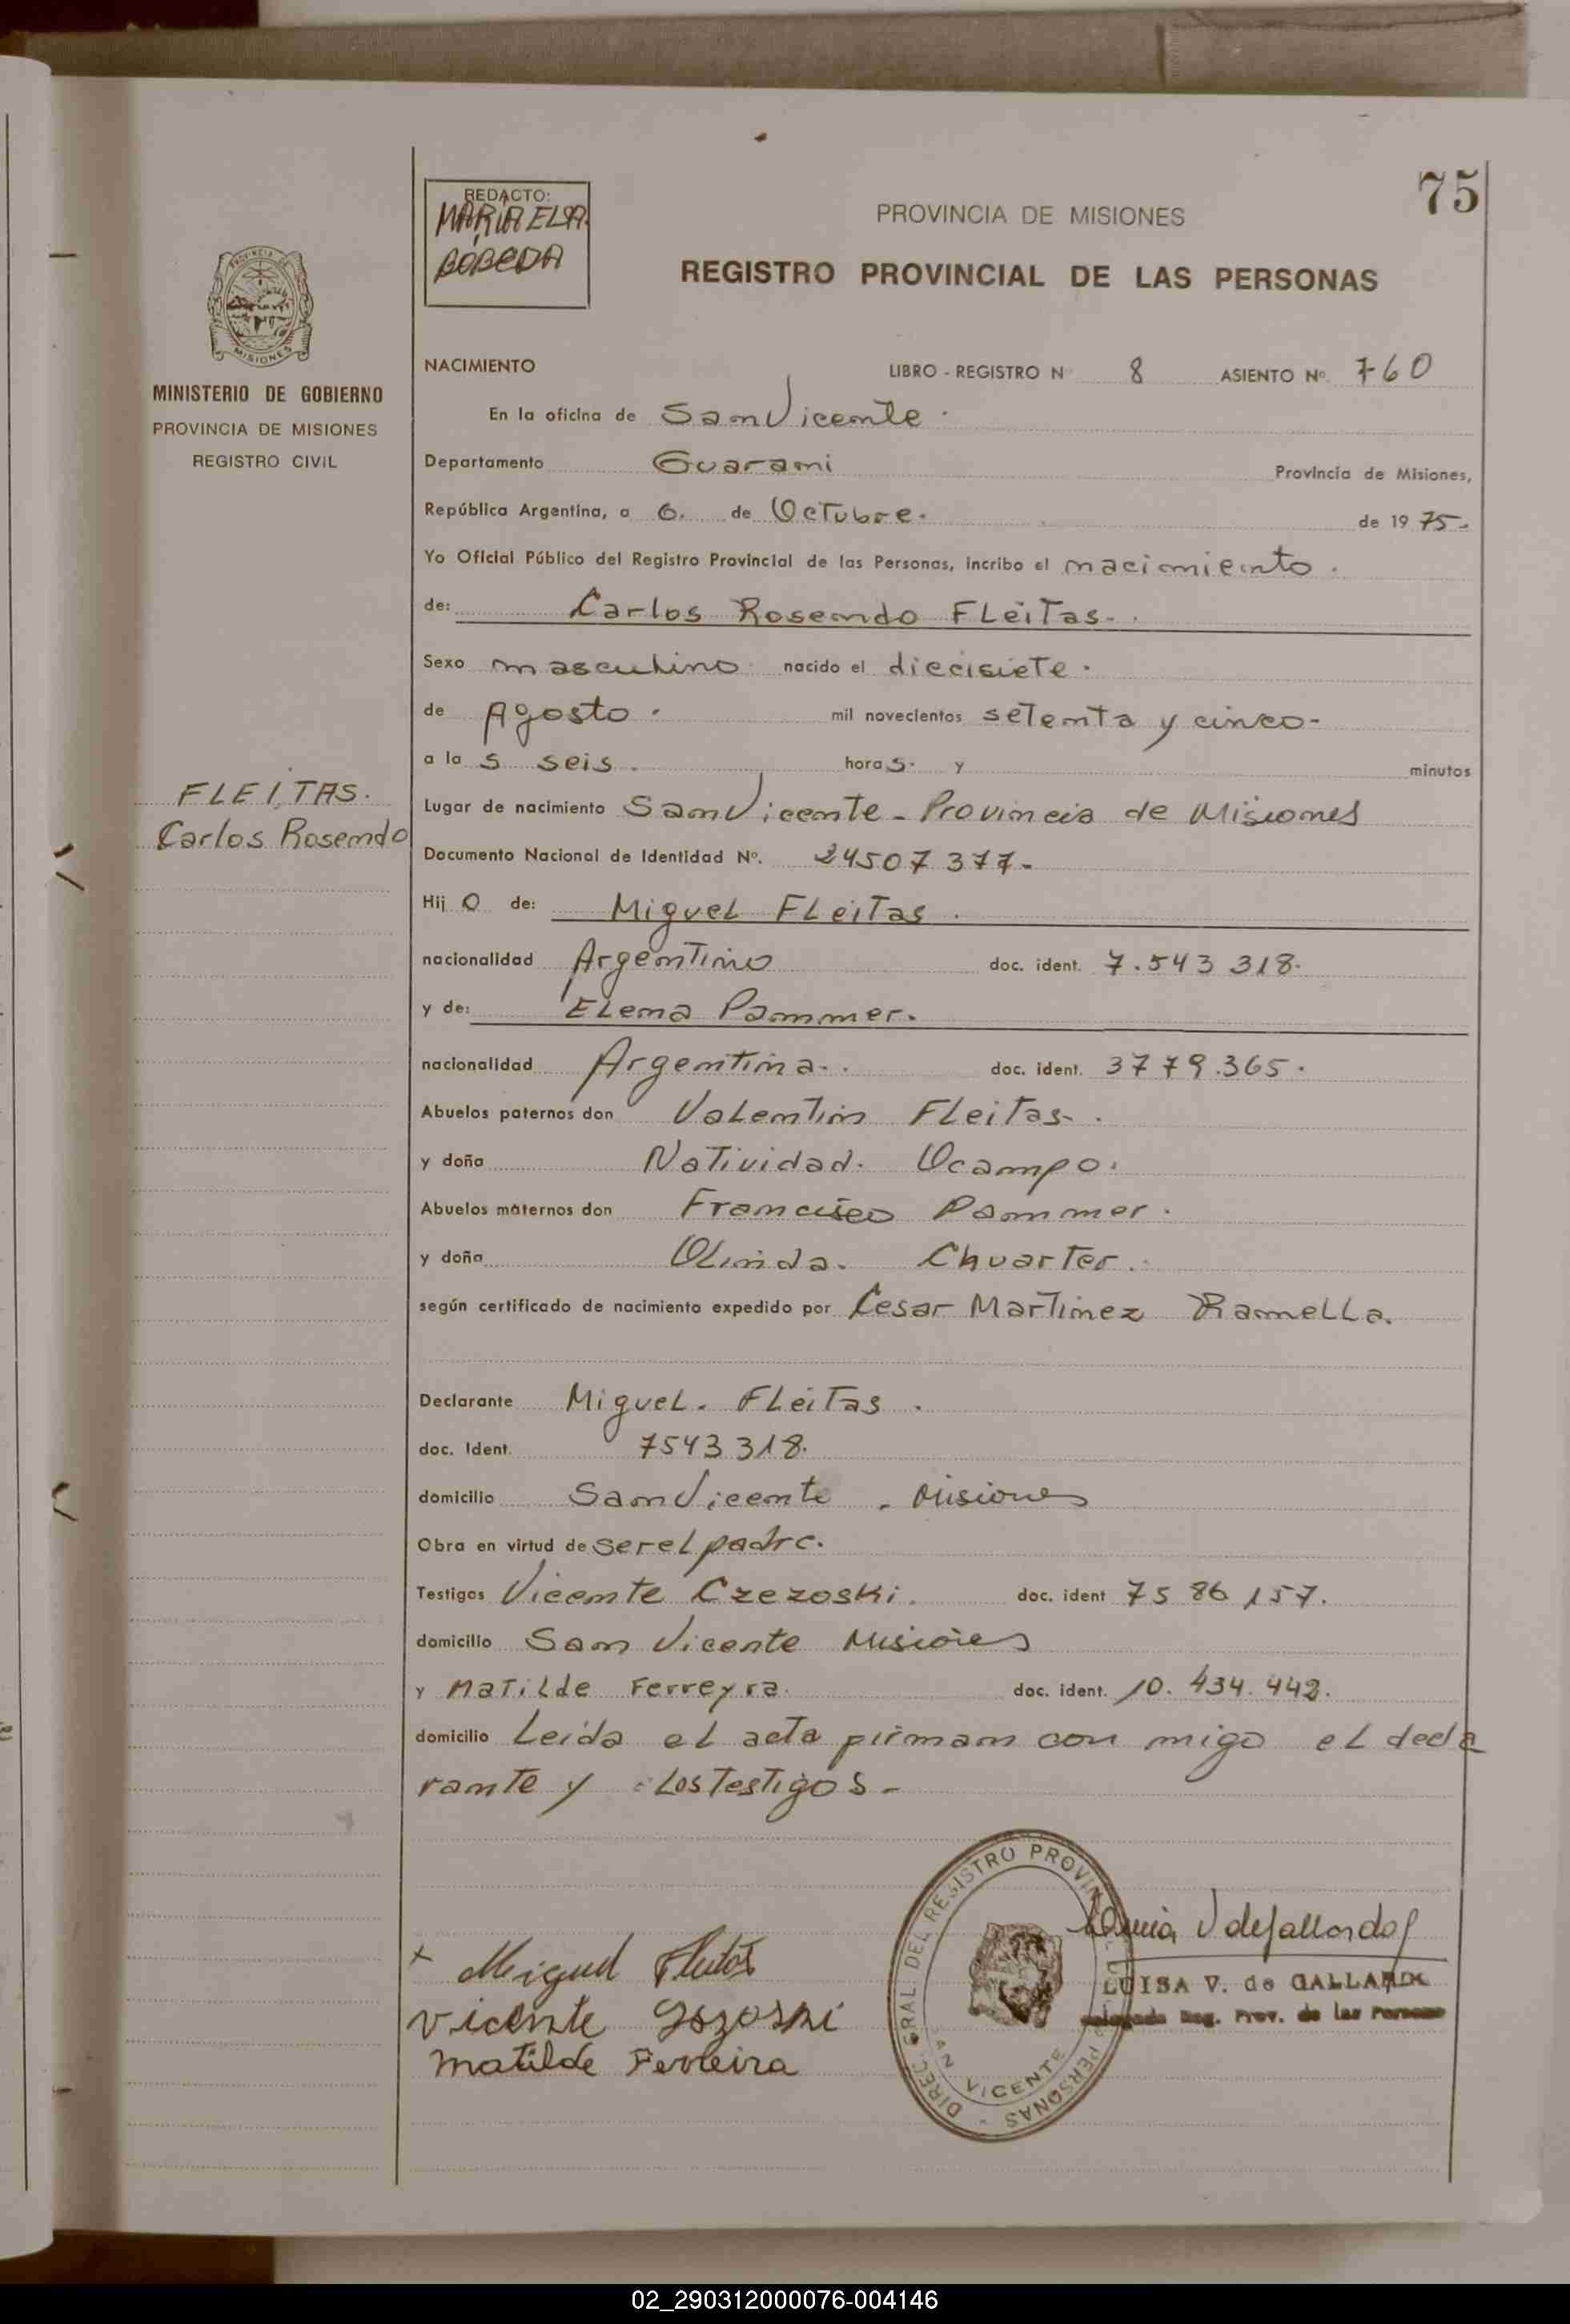 75
REDACTO:
MARIA ELSA
BOBEDA
PROVINCIA DE MISIONES
REGISTRO PROVINCIAL DE LAS PERSONAS
PROVINCIA DE
MISIONES
MINISTERIO DE GOBIERNO
PROVINCIA DE MISIONES
REGISTRO CIVIL
NACIMIENTO LIBRO - REGISTRO N 8 ASIENTO Nº 760
En la oficina de San Vicente.
Departamento Guarani Provincia de Misiones,
República Argentina, a 6. de Octubre. de 1975.-
Yo Oficial Público del Registro Provincial de las Personas, incribo el nacimiento.
de: Carlos Rosendo FLeiTas.
Sexo masculino nacido el diecisiete.
de Agosto. mil novecientos setenta y cinco-
a las seis. horas. y minutos
FLEITAS.
Carlos Rosendo
Lugar de nacimiento San Vicente - Provincia de Misiones
Documento Nacional de Identidad Nº. 24507377-
Hijo de: Miguel FLeiTas.
nacionalidad Argentino doc. ident. 7.543 318.
y de: ELena Pammer.
nacionalidad Argentina.. doc. ident. 3779.365.
Abuelos paternos don Valentin FLeitas.
y doña Natividad. Ocampo.
Abuelos maternos don Francisco Pammer.
y doña Olinda. Chuarter.
según certificado de nacimiento expedido por Cesar Martinez RameLLa.
Declarante Miguel. FLeiTas.
doc. Ident. 7543 318.
domicilio San Vicente. Misiones
Obra en virtud de ser el padre.
Testigos Vicente Czezoski. doc. ident 7586 157.
domicilio San Vicente Misiones
y Matilde Ferreyra. doc. ident. 10.434.442.
domicilio Leida el acta firman con migo el decla
rante y Los testigos-
DIREC. GRAL. DEL REGISTRO PERSONAS
SAN VICENTE
x Miguel Fleitas
Vicente
Matilde Ferreira
LUISA V. de GALLARDO
Delegada Reg. Prov. de las Personas
02_290312000076-004146